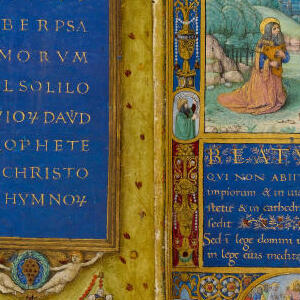 BERPSA
MORVM
LSOLILO
DAVD
OPHETE
CHRISTO
HYMNOꝝ
BEATV
QVI NON ABII
impiorum & in uia
stetit & in cathedr
sedit
Sed i lege domini
in lege eius medita